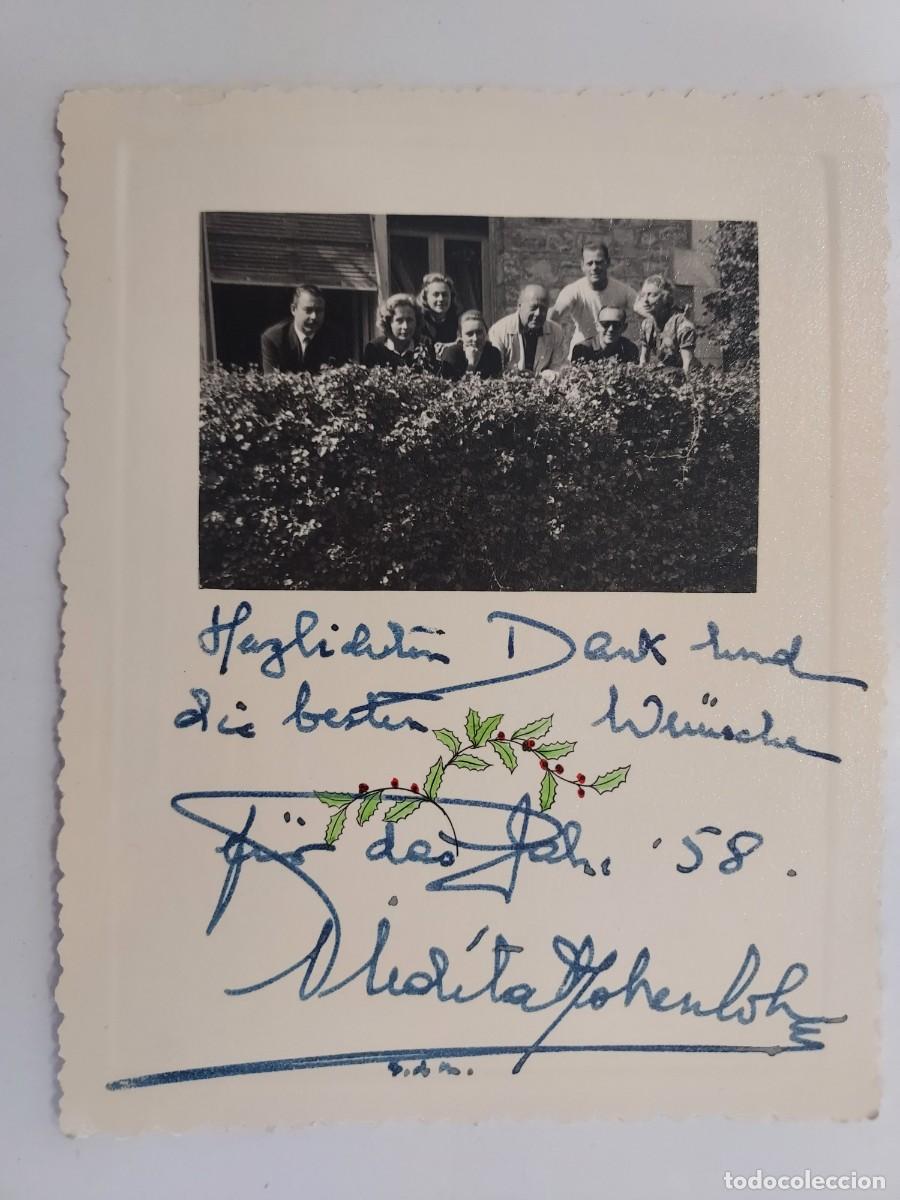 Herzlichsten Dank und
die besten Wünsche
für das Jahr '58.
Hohenlohe
todocoleccion